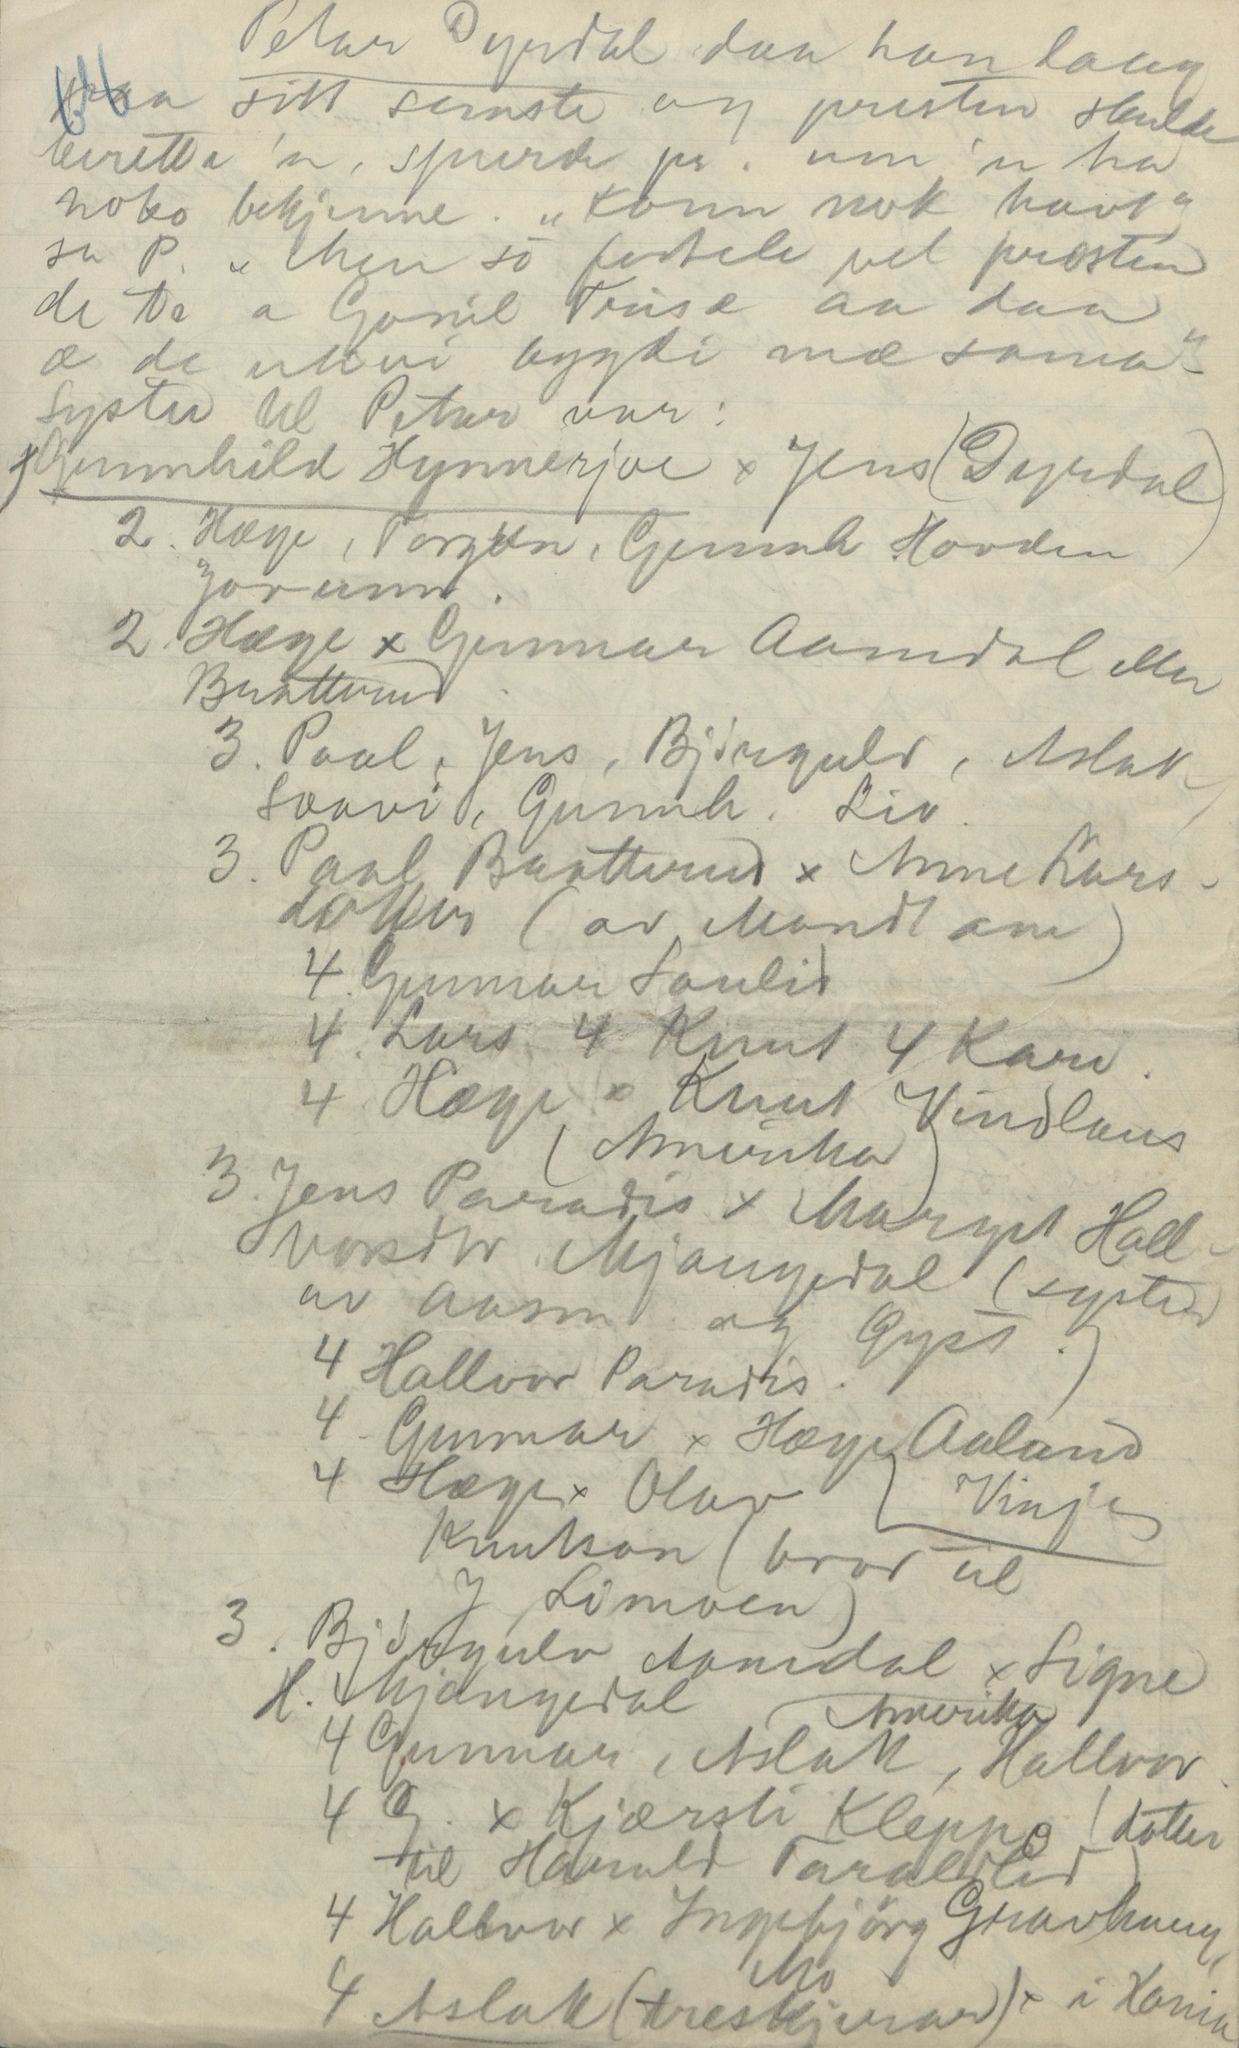 64
Petar Dyrdal daa han laag
paa sitt semste og presten skulde
beretta 'n, spurde pr. um 'n ha
noko bekjenne. "Konn nok havt"
sa P. "Men so fortele vel presten
de te a Gonil Triisæ aa daa
æ de utuvi bygdi mæ soma"
Syster til Petar var:
Gunnhild Hynnerjoe x Jens (Dyrdal)
2. Hæge, Torgun, Gunnh Hovden
Jorunn.
2. Hæge x Gunnar Aamdal eller
Braatterud
3. Paal, Jens, Björgulv, Aslak,
Saavi, Gunnh. Liv.
3. Paal Braatterud x Anne Lars-
dotter (av Mandt ane)
4. Gunnar Saulid
4. Lars 4 Knut 4 Kari.
4. Hæge x Knut Vindlaus
(Amerika)
3. Jens Paradis x Margit Hall-
vorsdtr. Mjaugedal (syster
av Aasm. og Gyst.)
4 Hallvor Paradis.
4. Gunnar x Hæge Aaland
4 Hæge x Olav Vinje
Knutson (bror til
J Limoen)
3. Björgulv Aamdal x Signe
H. Mjaugedal Amerika
4 Gunnar, Aslak, Hallvor.
4 G. x Kjærsti Kleppo (dotter
til Harald Taraldlid)
4 Hallvor x Ingebjörg Gravhaug,
Mo
4 Aslak (treskjerar) x i Xania